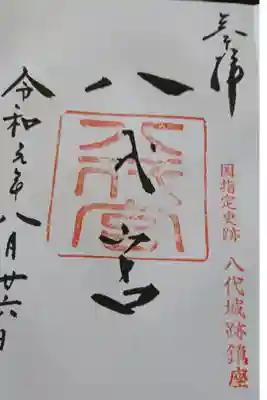 奉拝
国指定史跡 八代城跡鎮座
八代宮
令和元年八月廿六日